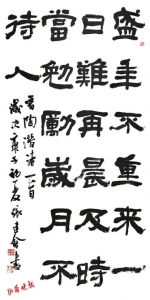 盛年不重來一
日難再晨及時
當勉勵歲月不
待人
晋陶潜诗一首
歲次庚子初夏